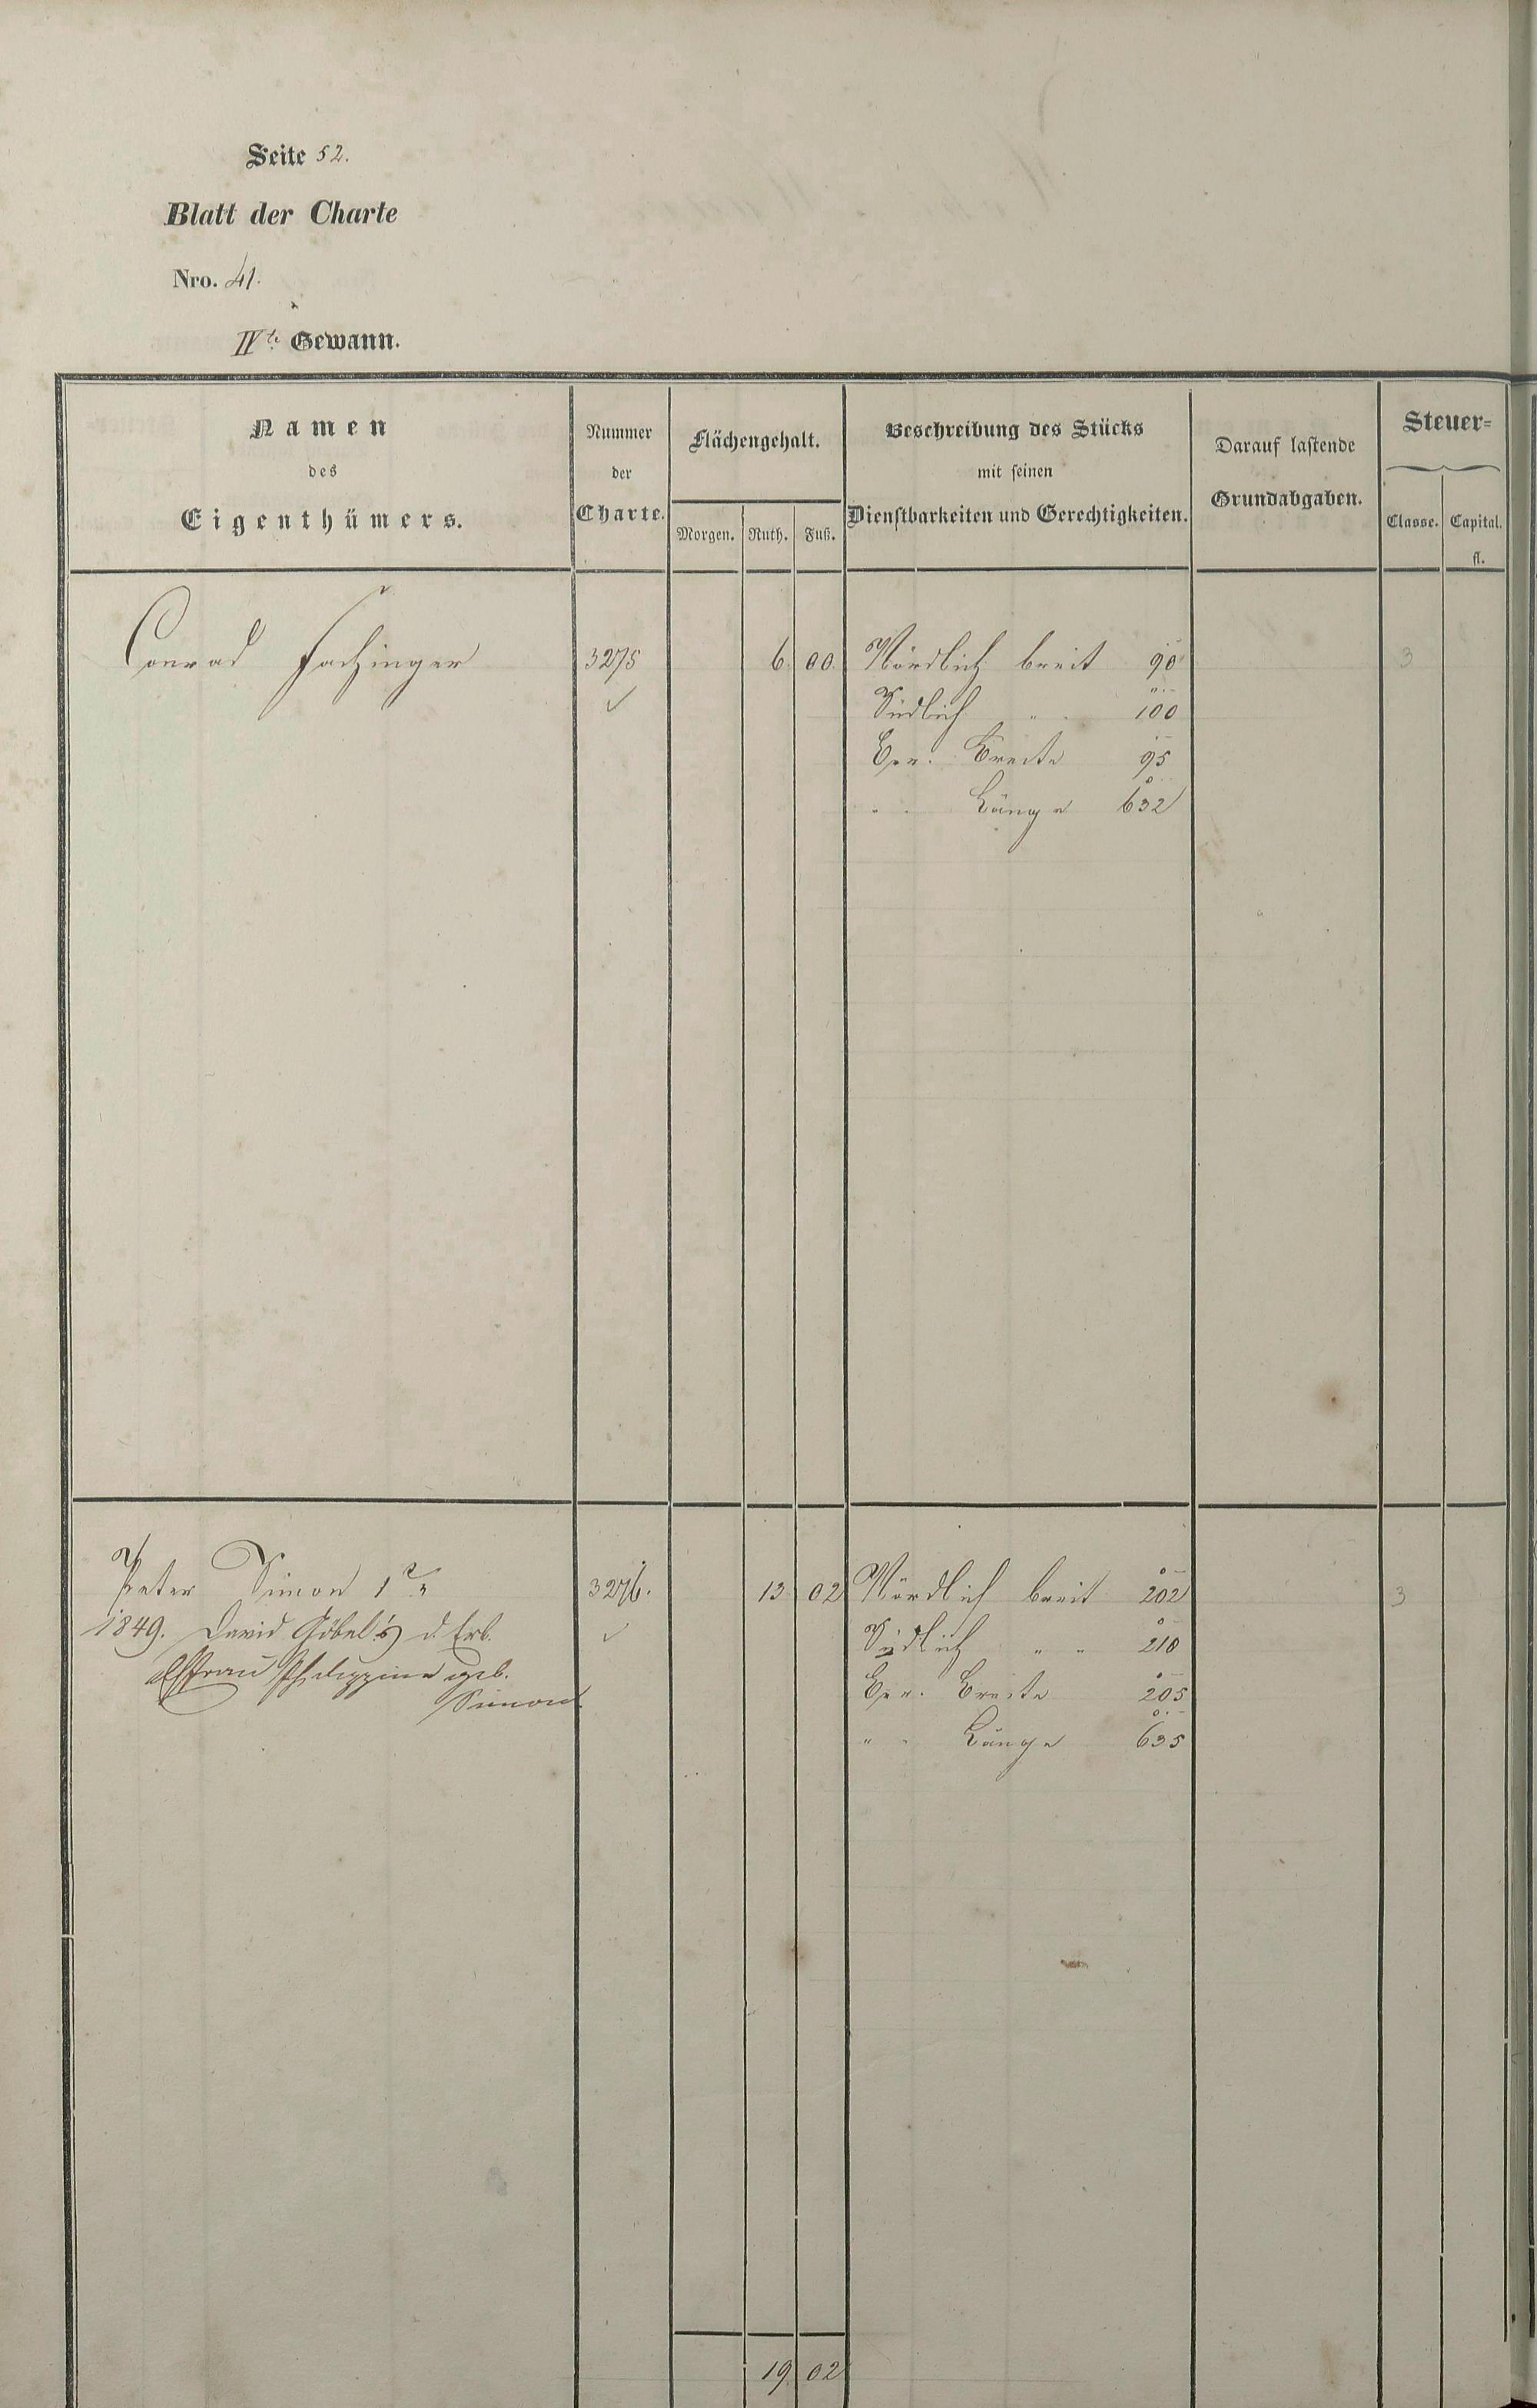 Seite 52.
Blatt der Charte
Nro. 41.
IVte Gewann.
Namen
des
Eigenthümers.
Nummer
der
Charte.
Flächengehalt.
Morgen. Ruth. Fuß.
Beschreibung des Stücks
mit seinen
Dienstbarkeiten und Gerechtigkeiten.
Darauf lastende
Grundabgaben.
Steuer-
Classe. Capital.
fl.
Conrad Fachinger 3275 6. 00. Nördlich breit 90 3
Südlich " " 100
Breite 95
" " Länge 632
Peter Simon 1r 3276. 13 02 Nördlich breit 202 3
1849. David Göbel's d. Erb. Südlich " " 210
Ehfrau Philippine geb. Breite 205
Simon
" " Länge 635
19. 02